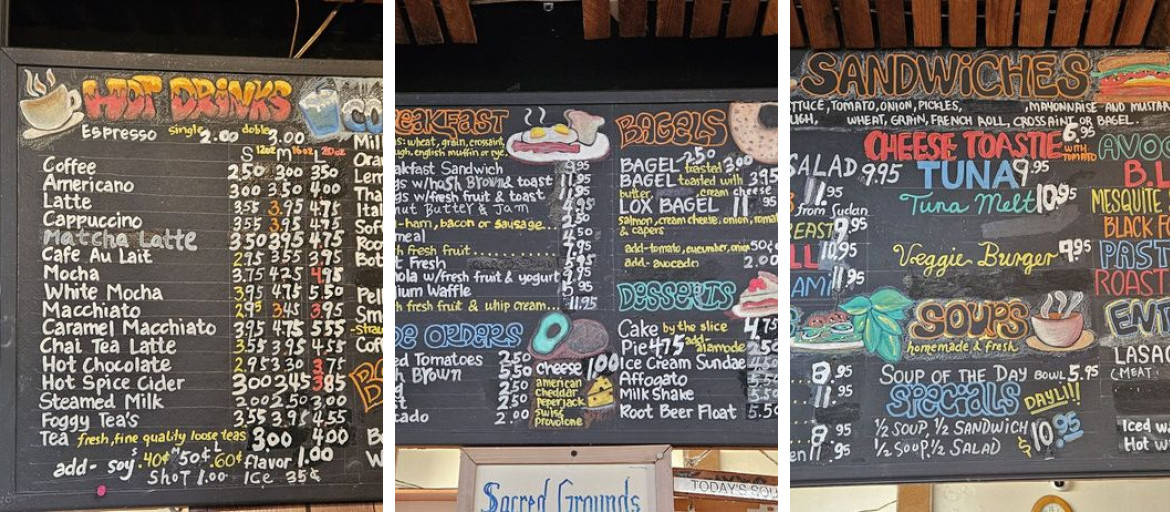 HOT DRINKS
Espresso single 2.00 doble 3.00
S 12oz M 16oz L 20oz
Coffee 2.50 300 350
Americano 300 3.50 400
Latte 3.55 3.95 4.75
Cappuccino 3.55 3.95 4.75
Matcha Latte 3.50 3.95 4.75
Cafe Au Lait 2.95 3.55 3.95
Mocha 3.75 4.25 4.95
White Mocha 3.95 4.75 5.50
Macchiato 2.95 3.45 3.95
Caramel Macchiato 3.95 4.75 5.55
Chai Tea Latte 3.55 3.95 4.55
Hot Chocolate 2.95 3.30 3.75
Hot Spice Cider 300 3.45 3.85
Steamed Milk 2.00 2.50 3.00
Foggy Tea's 3.55 3.95 4.55
Tea fresh, fine quality loose teas 3.00 4.00
add- soy S .40¢ M 50¢ L .60¢ flavor 1.00
Shot 1.00 Ice 35¢
EAKFAST
s: wheat, grain, crossaint,
ugh, english muffin or rye.
akfast Sandwich 9.95
gs w/hash Brown & toast 11.95
gs w/fresh fruit & toast 11.95
nut Butter & Jam 4.95
-ham, bacon or sausage... 2.50
meal
h fresh fruit
t Fresh
ola w/fresh fruit & yogurt
ium Waffle
h fresh fruit & whip cream... 11.95
DE ORDERS
ed Tomatoes 2.50
h Brown 2.50
2.50
2.50
cado 2.00
cheese 1.00
american
cheddar
peperjack
swiss
provolone
BAGELS
BAGEL 2.50 toasted 3.00
BAGEL toasted with 3.95
butter cream cheese
LOX BAGEL 11.95
salmon, cream cheese, onion, tomat
& capers
add- tomato, cucumber, onion 50¢
add- avocado 2.00
DESSERTS
Cake by the slice 4.75
Pie 4.75 add- alamode
Ice Cream Sundae
Affogato 5.50
Milk Shake
Root Beer Float 5.50
Sacred Grounds
TODAY'S SOU
SANDWiCHES
TTUCE, TOMATO, ONION, PICKLES, , MAYONNAISE AND MUSTAR
UGH, WHEAT, GRAIN, FRENCH ROLL, CROSSAINT OR BAGEL.
CHEESE TOASTIE 6.95 WITH TOMATO
SALAD 9.95 TUNA 9.95
11.95 Tuna Melt 10.95
from Sudan
EAST 9.95
10.95 Veggie Burger 9.95
AMI 11.95
AVOC
B.L
MESQUITE
BLACK FO
PAST
ROAST
SOUPS
homemade & fresh
SOUP OF THE DAY BOWL 5.95
8.95
SPECIALS DAYLI!!
½ SOUP, ½ SANDWICH
½ SOUP, ½ SALAD $10.95
8.95
ENT
LASAG
(MEAT
Iced w
Hot w